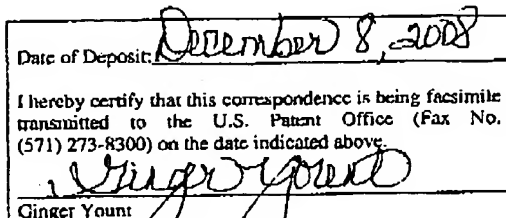 Date of Deposit: December 8, 2008
I hereby certify that this correspondence is being facsimile
transmitted to the U.S. Patent Office (Fax No.
(571) 273-8300) on the date indicated above.
Ginger Yount
Ginger Yount